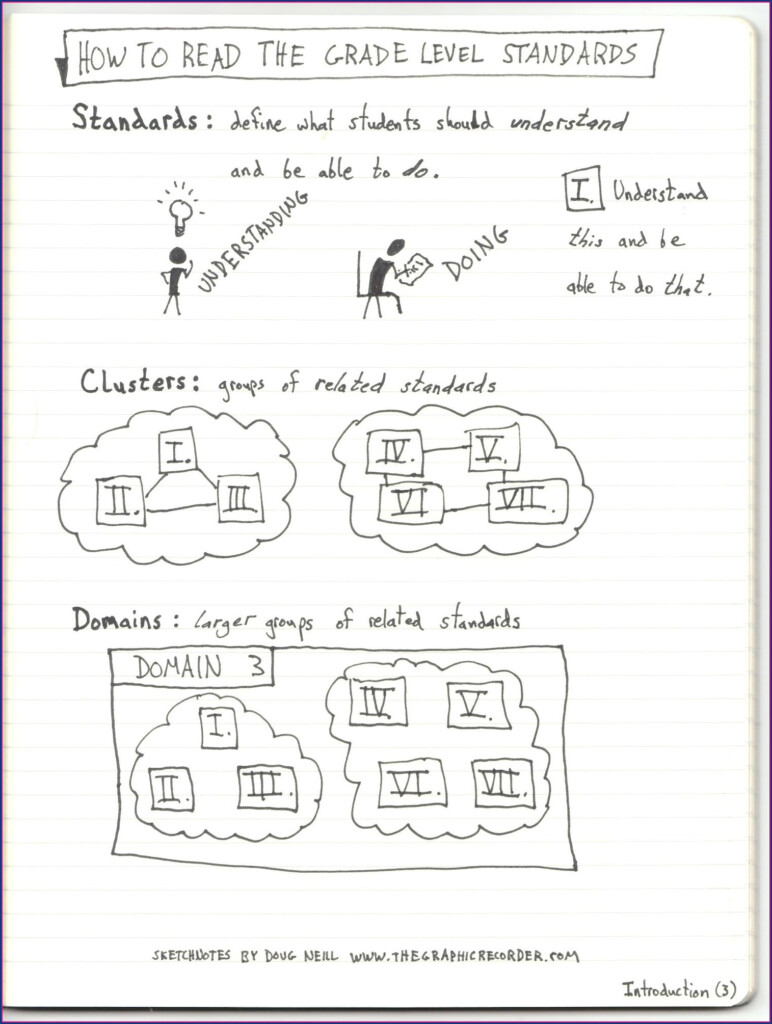 HOW TO READ THE GRADE LEVEL STANDARDS
Standards: define what students should understand
and be able to do.
UNDERSTANDING
DOING
I. Understand
this and be
able to do that.
Clusters: groups of related standards
I.
II.
III
IV.
V.
VI
VII.
Domains: larger groups of related standards
DOMAIN 3
I.
II.
III.
IV.
V.
VI.
VII.
SKETCHNOTES BY DOUG NEILL WWW.THEGRAPHICRECORDER.COM
Introduction (3)